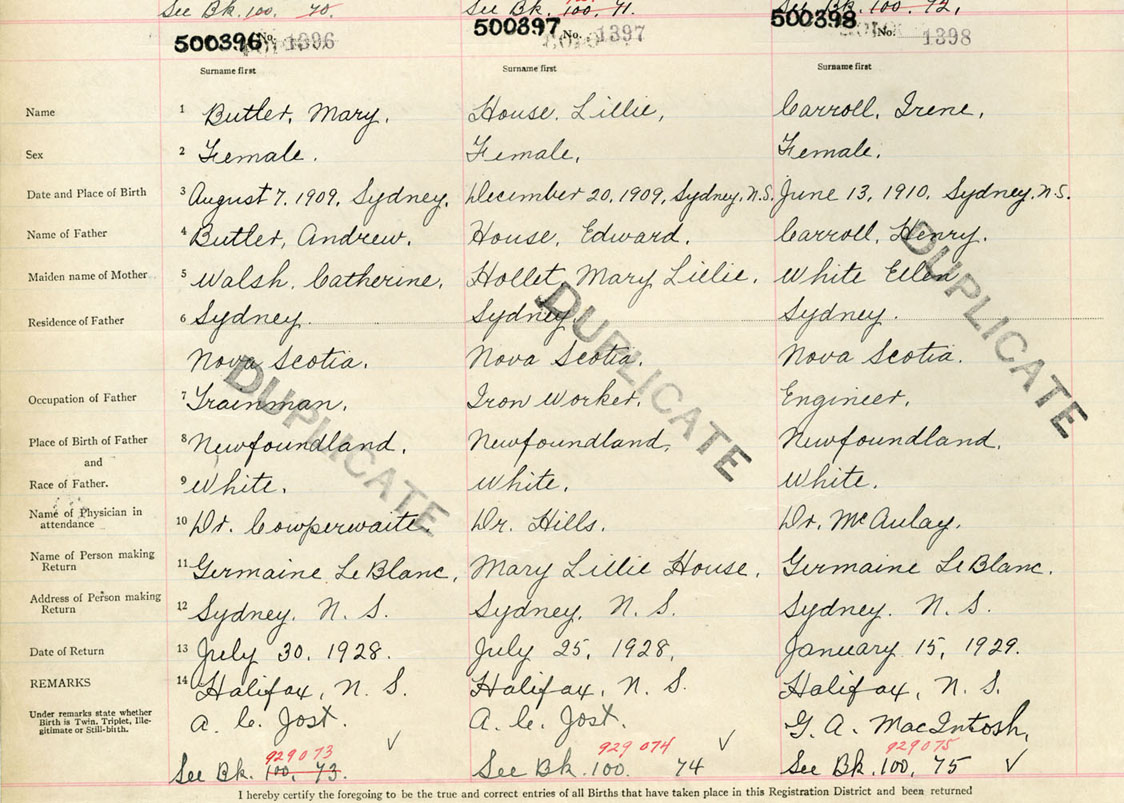 See Bk. 100. 70. See Bk. 100. 71. See Bk. 100. 72.
500396 No. 1396 500397 No. 1397 500398 No. 1398
Surname first Surname first Surname first
Name 1 Butler, Mary. House, Lillie, Carroll, Irene,
Sex 2 Female. Female, Female.
Date and Place of Birth 3 August 7, 1909, Sydney. December 20, 1909, Sydney, N.S. June 13, 1910, Sydney, N.S.
Name of Father 4 Butler, Andrew. House, Edward. Carroll, Henry.
Maiden name of Mother 5 Walsh, Catherine, Hollet, Mary Lillie. White Ellen
Residence of Father 6 Sydney Sydney Sydney.
Nova Scotia. Nova Scotia. Nova Scotia.
Occupation of Father 7 Trainman. Iron Worker. Engineer,
Place of Birth of Father 8 Newfoundland. Newfoundland, Newfoundland.
and
Race of Father. 9 White. White. White.
Name of Physician in
attendance 10 Dr. Cowperwaite. Dr. Hills. Dr. McAulay.
Name of Person making
Return 11 Germaine LeBlanc, Mary Lillie House. Germaine LeBlanc.
Address of Person making
Return 12 Sydney, N. S. Sydney, N. S. Sydney. N. S.
Date of Return 13 July 30, 1928. July 25, 1928, January 15, 1929.
REMARKS 14 Halifax, N. S. Halifax, N. S. Halifax, N. S.
Under remarks state whether
Birth is Twin, Triplet, Ille-
gitimate or Still-birth.
A. C. Jost. A. C. Jost. G. A. MacIntosh,
929073 929074 929075
See Bk. 100, 73. See Bk. 100. 74 See Bk. 100, 75
I hereby certify the foregoing to be the true and correct entries of all Births that have taken place in this Registration District and been returned
DUPLICATE
DUPLICATE
DUPLICATE